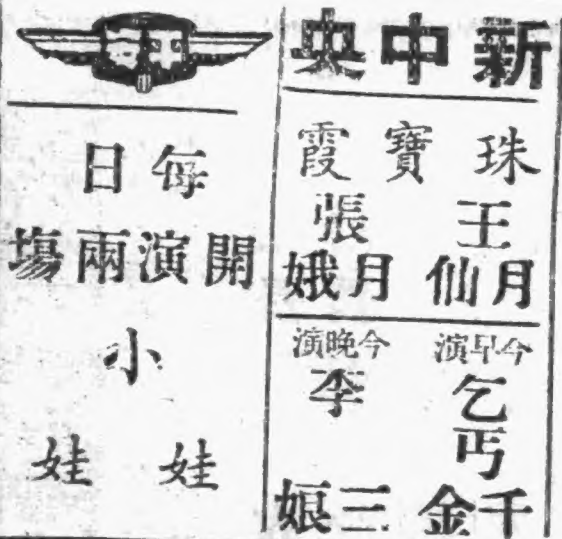 新中央
珠寶霞
王月仙
張月娥
今早演
乞丐千金
今晚演
李三娘
每日
開演兩塲
小
娃娃